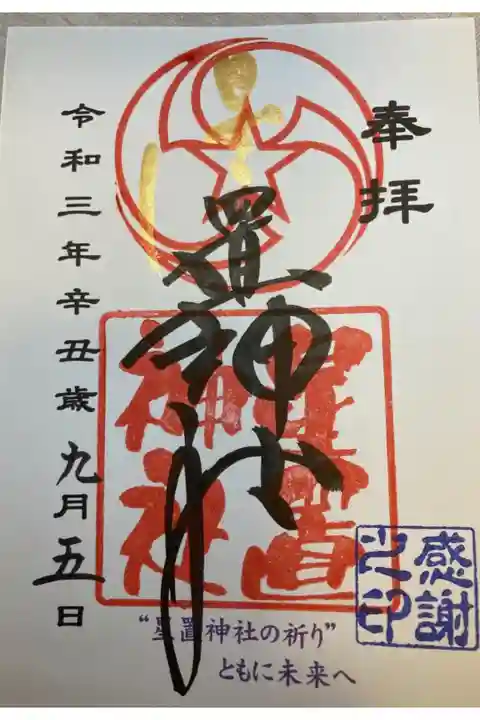 奉拝
星置神社
星置神社
令和三年辛丑歳九月五日
感謝之印
“星置神社の祈り”
ともに未来へ